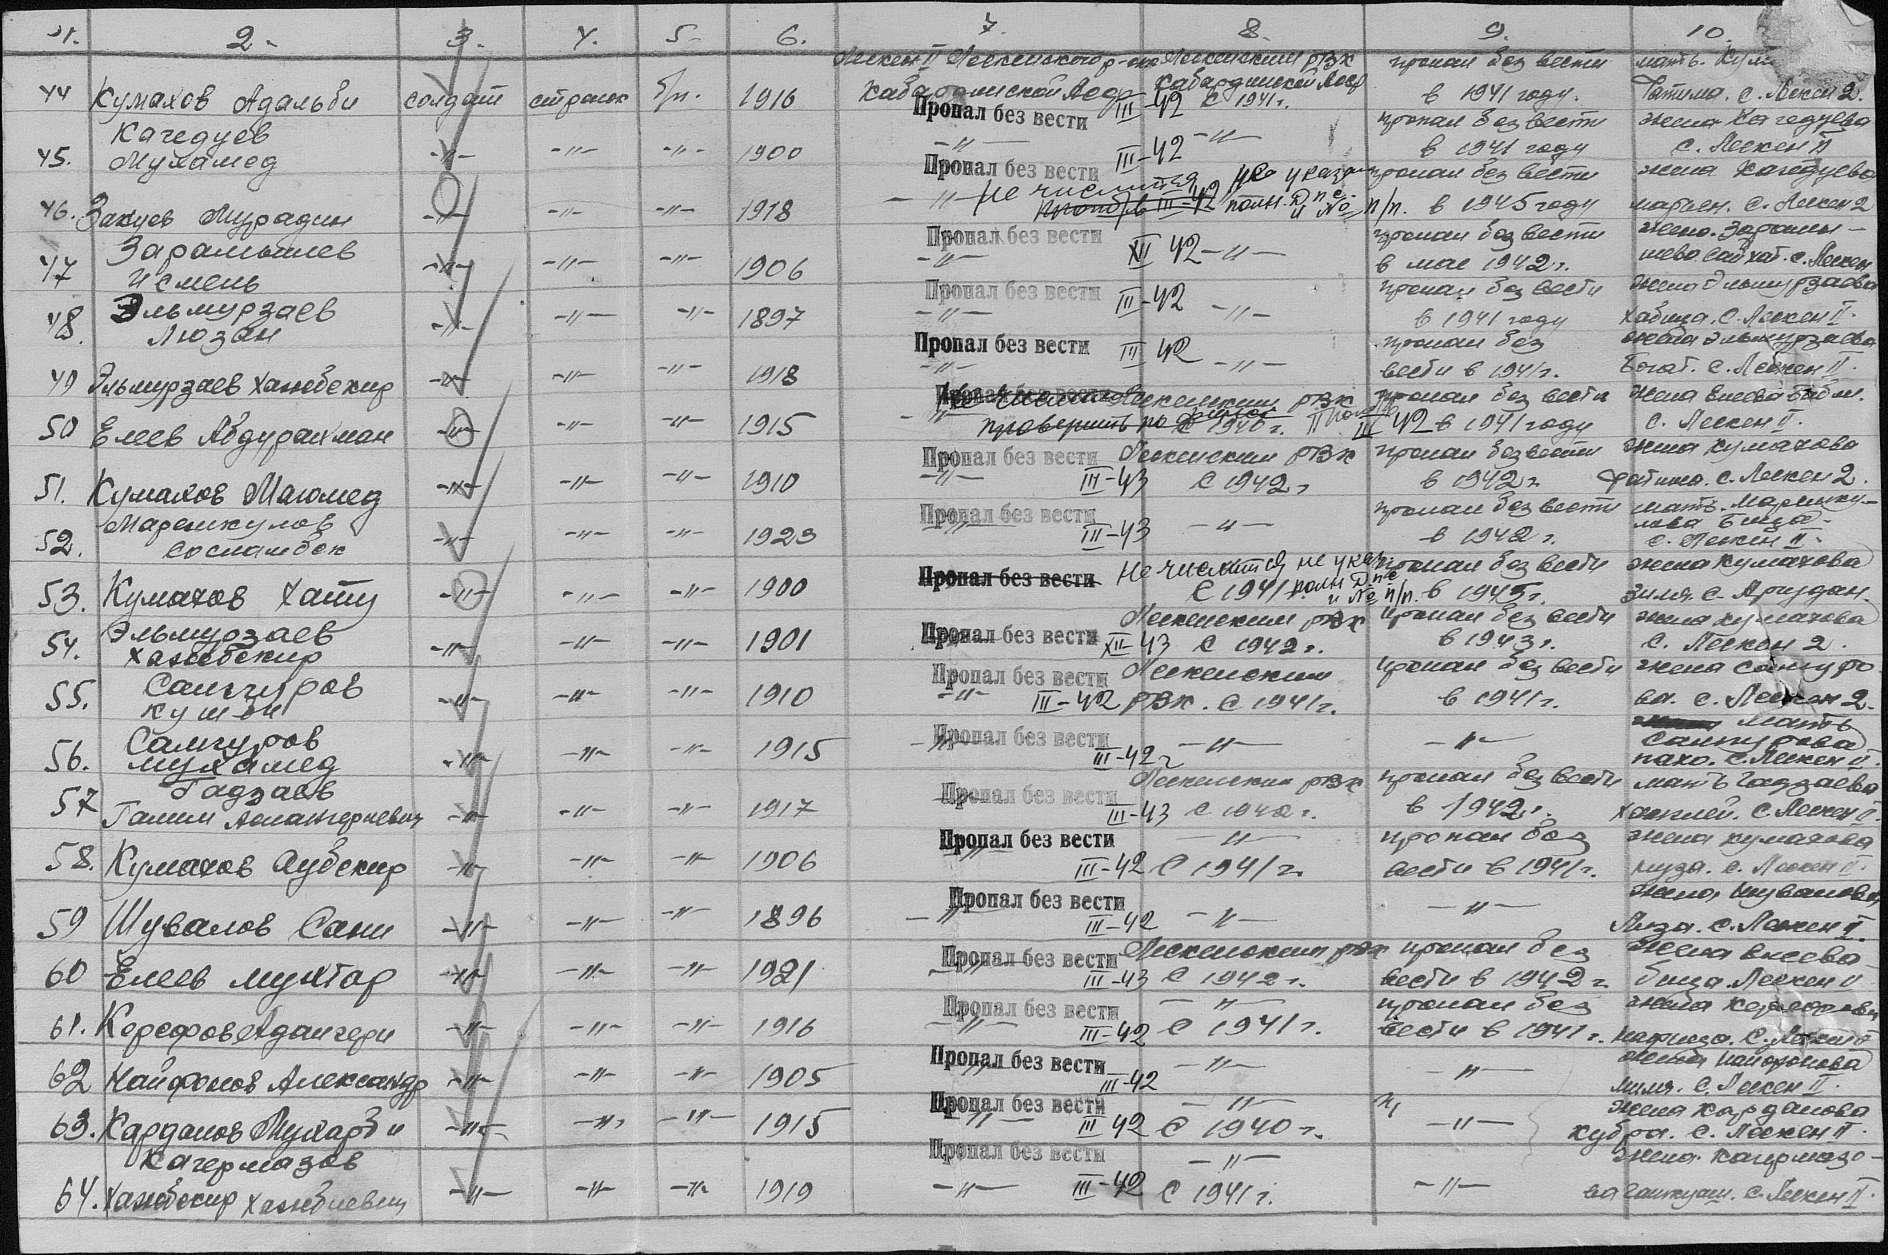 1. 2. 3. 4. 5. 6. 7. 8. 9. 10.
Лескен II Лескенского р-она Лескенским РВК пропал без вести мать. Кум
44 Кумахов Адальби солдат стрелок б/п. 1916 Кабардинской Асср Кабардинской Асср в 1941 году. Фатима. с. Лескен 2.
Пропал без вести III-42 С 1941г.
Качедуев пропал без вести жена Кагедуева
45. Мухамед -"- -"- -"- 1900 -"- -"- в 1941 году с. Лескен II
Пропал без вести III-42
не числится не указан пропал без вести жена Кагедуева
46. Закуев Мурадин -"- -"- -"- 1918 -"- III-42 полн. и № п/п. в 1945 году с. Лескен 2
Пропал без вести XII 42 пропал без вести жена. Зарамы-
47 Зарамышев Исмень -"- -"- -"- 1906 -"- -"- в мае 1942г. шева с. Лескен
Пропал без вести III-42 пропал без вести жена Эльмурзаева
48. Эльмурзаев Люзан -"- -"- -"- 1897 -"- -"- в 1941 году Хабица. с. Лескен II.
Пропал без вести III 42 пропал без жена Эльмурзаева
49 Эльмурзаев Хажбекир -"- -"- -"- 1918 -"- -"- вести в 1941г. с. Лескен II.
Пропал без вести Лескенским РВК пропал без вести жена Елеева
50 Елеев Абдурахман -"- -"- -"- 1915 -"- проверить по С 1940г. III 42 в 1941 году с. Лескен II.
Пропал без вести Лескенским РВК пропал без вести жена Кумахова
51. Кумахов Магомед -"- -"- -"- 1910 -"- III-43 С 1942г в 1942г. Фатима. с. Лескен 2.
Пропал без вести пропал без вести мать. Маремку-
52. Маремкулов Сосламбек -"- -"- -"- 1923 III-43 -"- в 1942г. лова с. Лескен II.
Пропал без вести Не числится не указ. пропал без вести жена Кумахова
53. Кумахов Хату -"- -"- -"- 1900 С 1941 полн и № п/п. в 1945г. с. Аргудан.
Лескенским РВК пропал без вести жена Кумахова
54. Эльмурзаев Хажбекир -"- -"- -"- 1901 Пропал без вести XII-43 С 1942г. в 1943г. с. Лескен 2.
Пропал без вести Лескенским пропал без вести жена Сангуро
55. Сангуров -"- -"- -"- 1910 -"- III-42 РВК. С 1941г. в 1941г. ва. с. Лескен 2.
Пропал без вести мать
56. Сангуров Мухамед -"- -"- -"- 1915 -"- III-42г -"- -"- Сангурова с. Лескен II.
Лескенским РВК пропал без вести мать Гадзаева
57 Гадзаев Галим -"- -"- -"- 1917 Пропал без вести III-43 С 1942г. в 1942г. с. Лескен II.
Пропал без вести -"- пропал без жена Кумахова
58. Кумахов Аубекир -"- -"- -"- 1906 -"- III-42 С 1941г. вести в 1941г. муза. с. Лескен II.
Пропал без вести жена Шувалова
59 Шувалов Сани -"- -"- -"- 1896 -"- III-42 -"- -"- Лиза. с. Лескен II.
Пропал без вести Лескенским РВК пропал без жена Елеева
60 Елеев Мухтар -"- -"- -"- 1921 -"- III-43 С 1942г. вести в 1942г. Лескен II
Пропал без вести -"- пропал без жена
61. Керефов Адамгери -"- -"- -"- 1916 -"- III-42 С 1941г. вести в 1941г. с. Лескен II
Пропал без вести -"- жена Найфонова
62 Найфонов Александр -"- -"- -"- 1905 III-42 -"- с. Лескен II.
Пропал без вести -"- жена Карданова
63. Карданов Мухарби -"- -"- -"- 1915 -"- III 42 С 1940г. -"- Кубра. с. Лескен II.
Пропал без вести -"- жена. Кагермазо-
64. Кагермазов Хажбекир Хажбиевич -"- -"- -"- 1919 -"- III-42 С 1941г. -"- ва с. Лескен II.